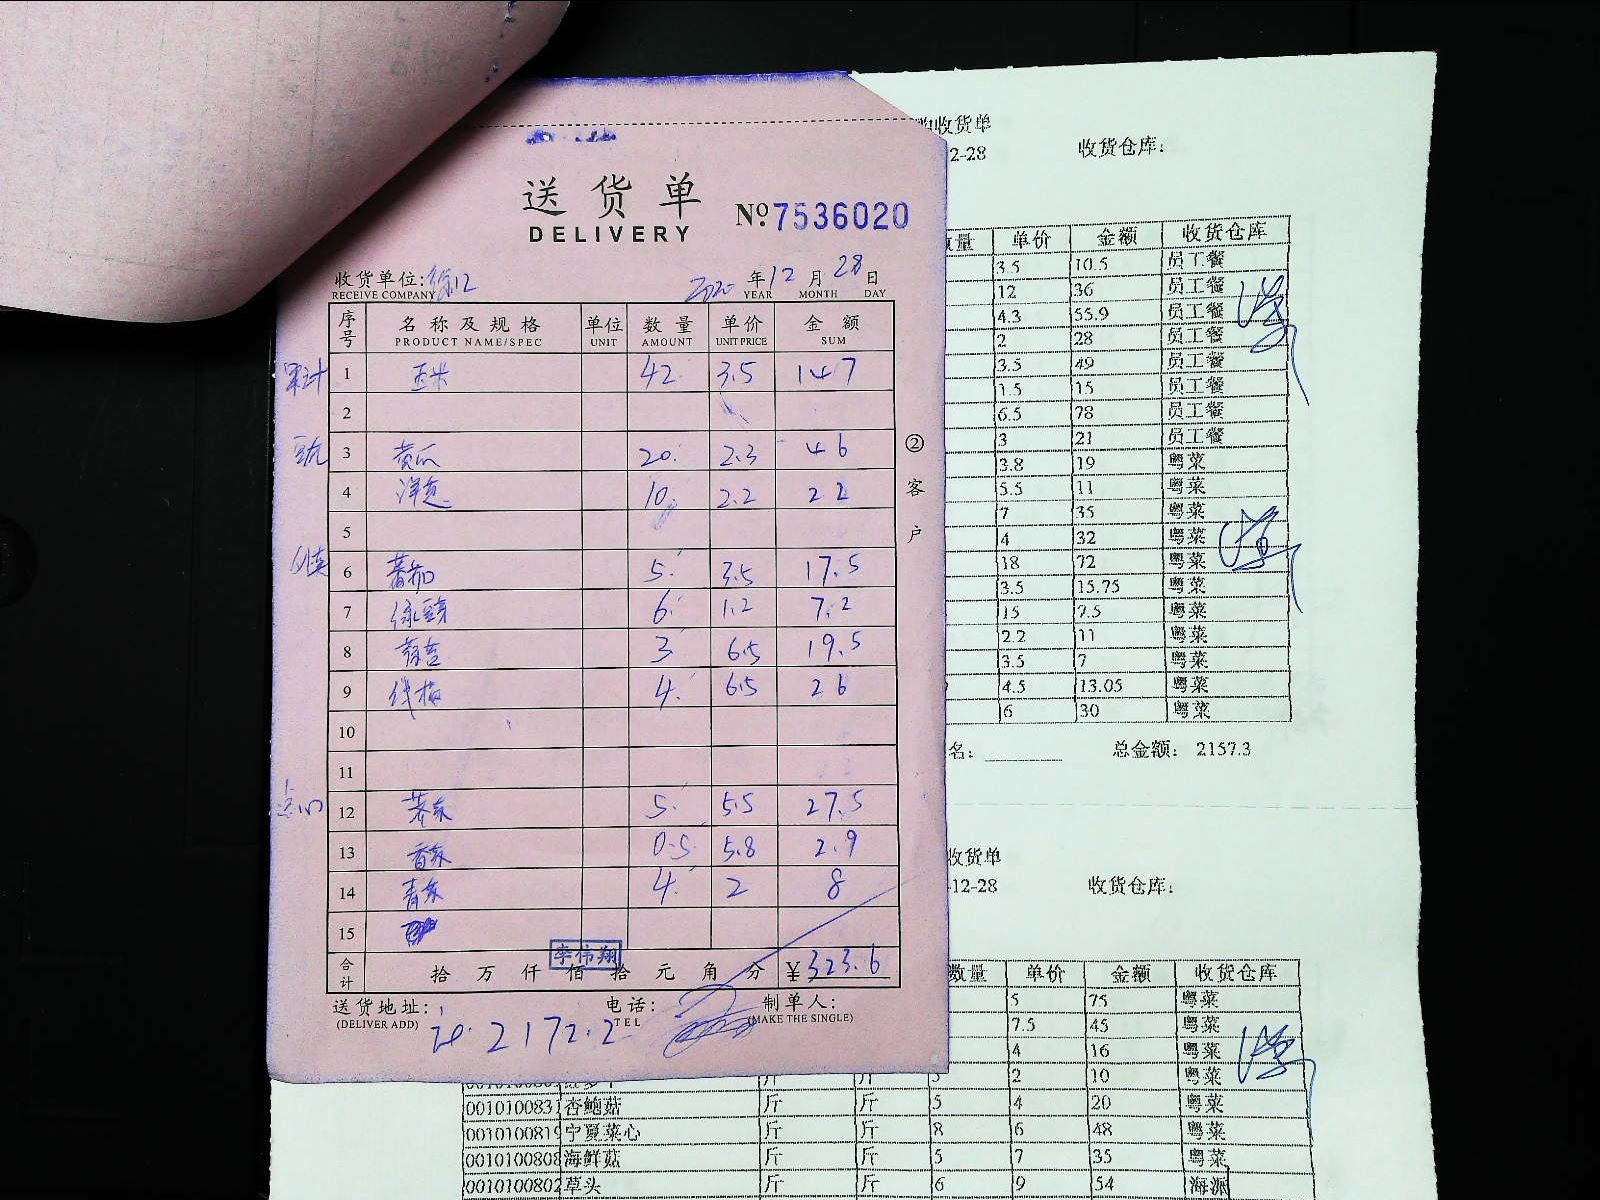 送货单
DELIVERY
№ 7536020
收货单位:
RECEIVE COMPANY
2020 年 12 月 28 日
YEAR MONTH DAY
序号 名称及规格 单位 数量 单价 金额
PRODUCT NAME/SPEC UNIT AMOUNT UNIT PRICE SUM
累计 1 玉米 42 3.5 147
2
3 黄瓜 20 2.3 46
4 洋葱 10 2.2 22
5
6 蕃茄 5 3.5 17.5
7 6 1.2 7.2
8 3 6.5 19.5
9 线椒 4 6.5 26
10
11
12 5 5.5 27.5
13 香菜 0.5 5.8 2.9
14 青菜 4 2 8
15
合计 拾万仟佰拾元角分 ¥323.6
李伟翔
②客户
送货地址:
(DELIVER ADD)
电话:
TEL
制单人:
(MAKE THE SINGLE)
2172.2
收货单
2-28 收货仓库:
数量 单价 金额 收货仓库
3.5 10.5 员工餐
12 36 员工餐
4.3 55.9 员工餐
2 28 员工餐
3.5 49 员工餐
1.5 15 员工餐
6.5 78 员工餐
3 21 员工餐
3.8 19 粤菜
5.5 11 粤菜
7 35 粤菜
4 32 粤菜
18 72 粤菜
3.5 15.75 粤菜
15 7.5 粤菜
2.2 11 粤菜
3.5 7 粤菜
4.5 13.05 粤菜
6 30 粤菜
名: 总金额: 2157.3
收货单
-12-28 收货仓库:
数量 单价 金额 收货仓库
5 75 粤菜
7.5 45 粤菜
4 16 粤菜
2 10 粤菜
0010100831 杏鲍菇 斤 斤 5 4 20 粤菜
0010100819 宁夏菜心 斤 斤 8 6 48 粤菜
0010100808 海鲜菇 斤 斤 5 7 35 粤菜
0010100802 草头 斤 斤 6 9 54 海派